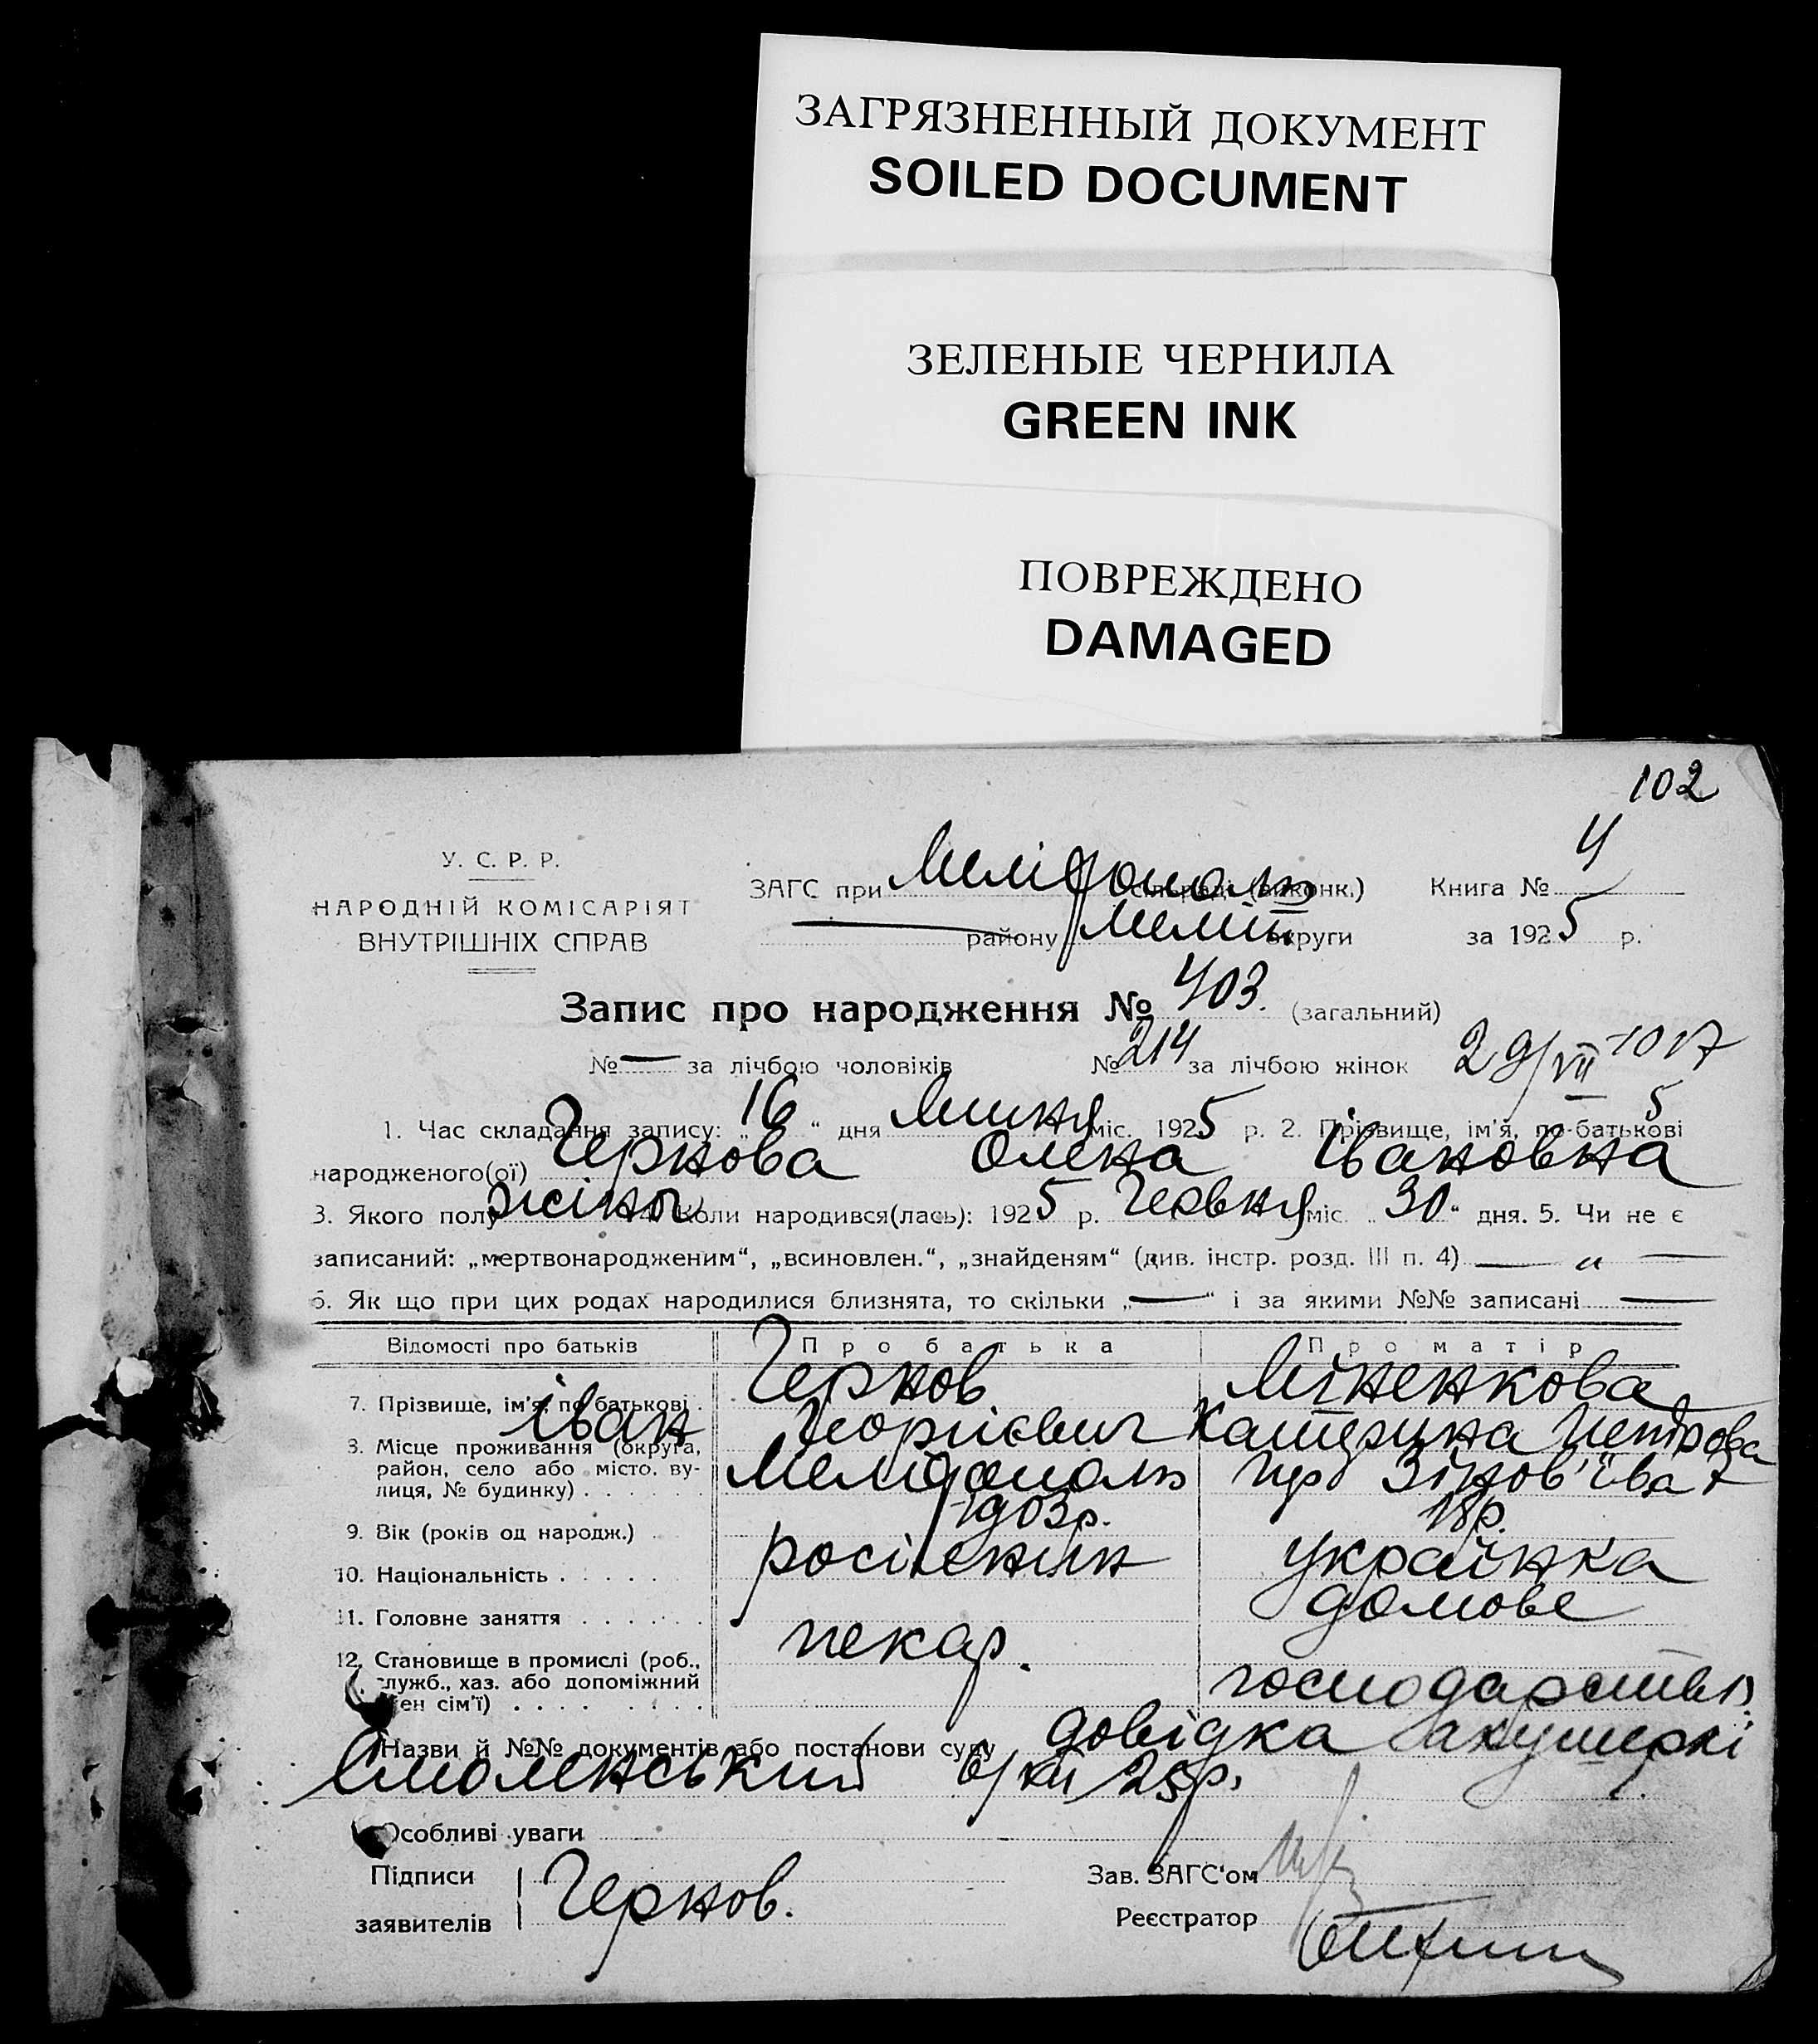 ЗАГРЯЗНЕННЫЙ ДОКУМЕНТ
SOILED DOCUMENT
ЗЕЛЕНЫЕ ЧЕРНИЛА
GREEN INK
ПОВРЕЖДЕНО
DAMAGED
102
У. С. Р. Р.
НАРОДНІЙ КОМІСАРІЯТ
ВНУТРІШНІХ СПРАВ
ЗАГС при Мелітополь сільраді (виконк.) Книга № 4
— району Меліт. округи за 1925 р.
Запис про народження № 403. (загальний)
№ — за лічбою чоловіків № 214 за лічбою жінок 29/VII 1017
5
1. Час складання запису: „16“ дня Липня міс. 1925 р. 2. Прізвище, ім'я, по-батькові
народженого(ої) Чернова Олена Івановна
3. Якого полу жіноч 4. Коли народився(лась): 1925 р. Червня міс. „30“ дня. 5. Чи не є
записаний: „мертвонародженим“, „всиновлен.“, „знайденям“ (див. інстр. розд. III п. 4) — „ —
6. Як що при цих родах народилися близнята, то скільки „—“ і за якими №№ записані —
Відомості про батьків Про батька Про матір
7. Прізвище, ім'я, по батькові Чернов Міненкова
Іван Георгієвич Катерина Петрова
8. Місце проживання (округа,
район, село або місто, ву-
лиця, № будинку) Мелітополь пр Зінов'їва 7
9. Вік (років од народж.) 1903р. 18р.
10. Національність росіенин українка
11. Головне заняття пекар. домове
12. Становище в промислі (роб.,
служб., хаз. або допоміжний
член сім'ї) господарство
Назви й №№ документів або постанови суду довідка акушеркі
Смоленський 6/VII 25р.
Особливі уваги
Підписи
заявителів Чернов.
Зав. ЗАГС'ом
Реєстратор